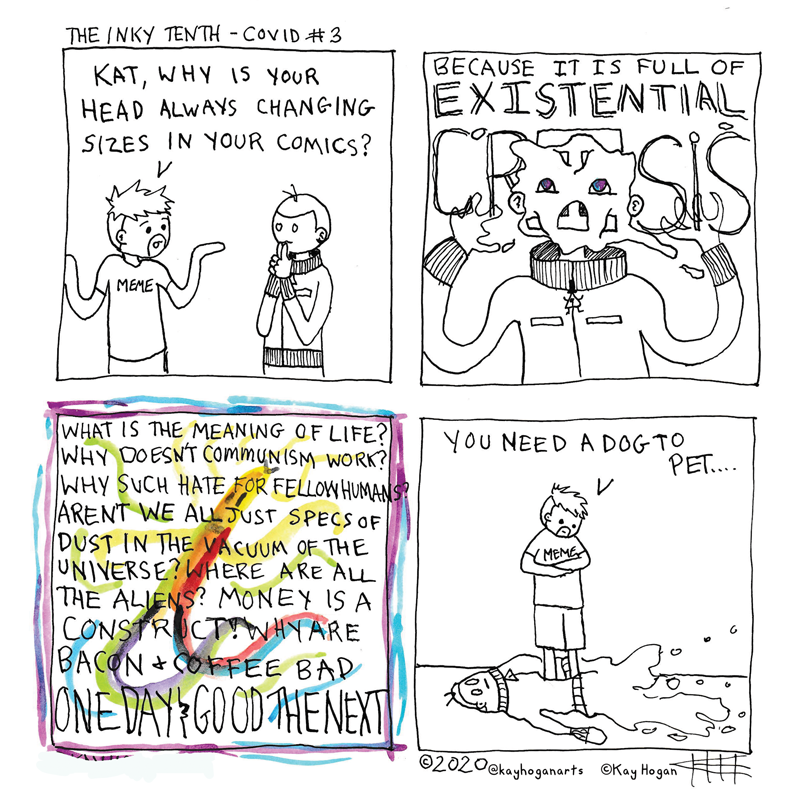 THE INKY TENTH - COVID #3
KAT, WHY IS YOUR
HEAD ALWAYS CHANGING
SIZES IN YOUR COMICS?
MEME
BECAUSE IT IS FULL OF
EXISTENTIAL
CRISIS
WHAT IS THE MEANING OF LIFE?
WHY DOESN'T COMMUNISM WORK?
WHY SUCH HATE FOR FELLOW HUMANS?
AREN'T WE ALL JUST SPECS OF
DUST IN THE VACUUM OF THE
UNIVERSE? WHERE ARE ALL
THE ALIENS? MONEY IS A
CONSTRUCT! WHY ARE
BACON & COFFEE BAD
ONE DAY & GOOD THE NEXT
YOU NEED A DOG TO
PET....
MEME
©2020 @kayhoganarts ©Kay Hogan